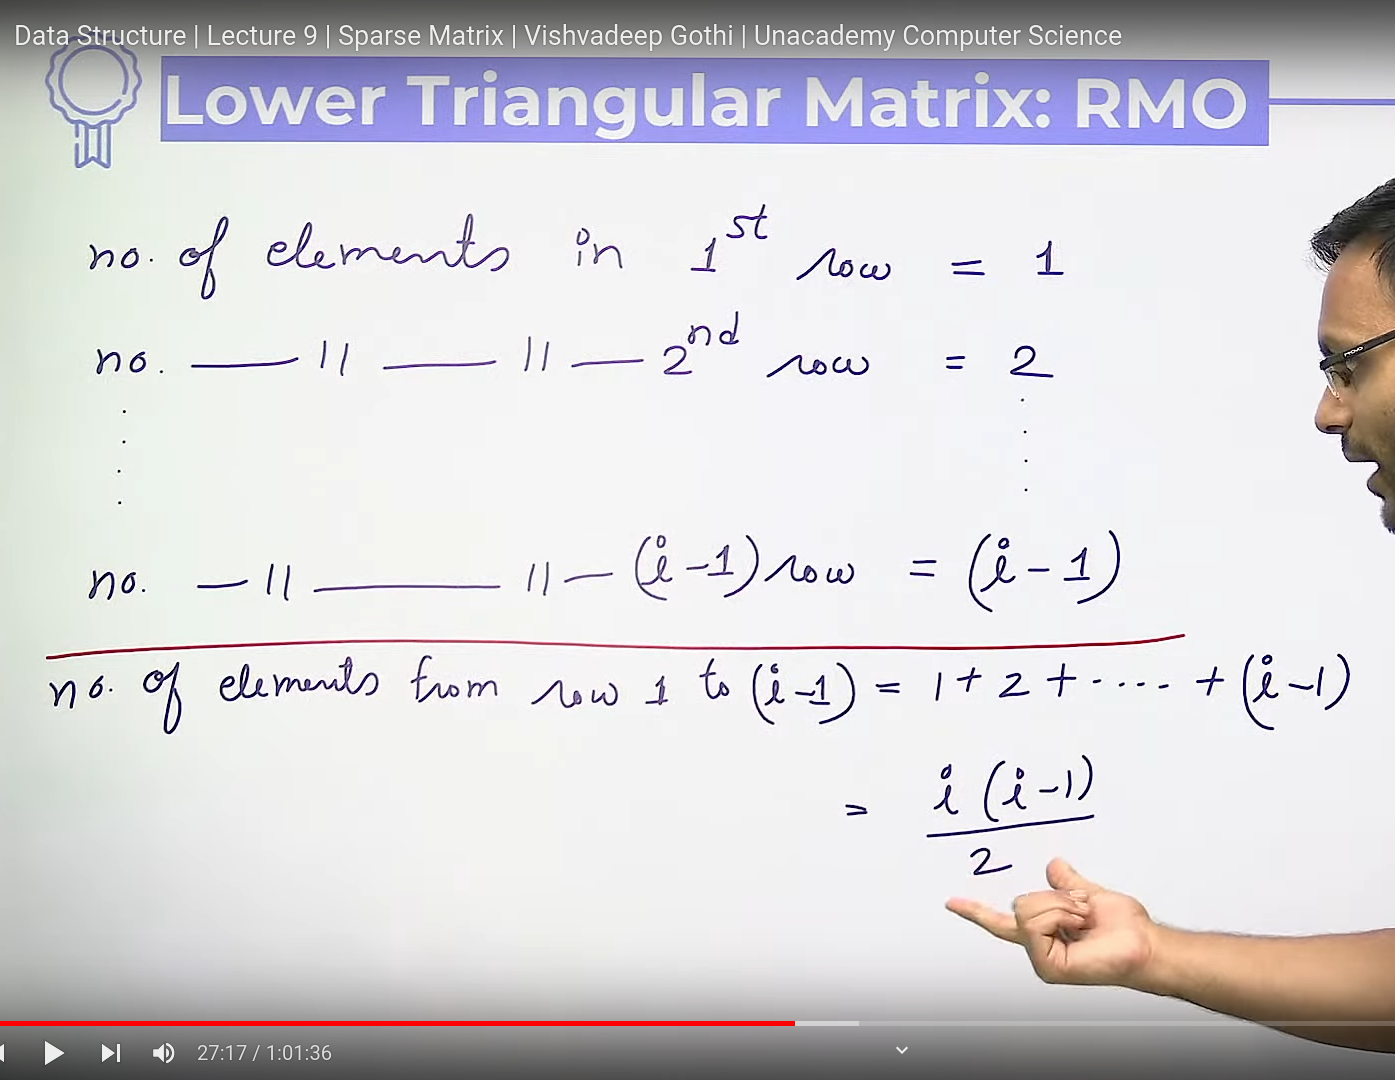 Data Structure | Lecture 9 | Sparse Matrix | Vishvadeep Gothi | Unacademy Computer Science
Lower Triangular Matrix: RMO
no. of elements in 1st row = 1
no. — 11 — 11 — 2nd row = 2
no. — 11 — 11 — (i-1) row = (i-1)
no. of elements from row 1 to (i-1) = 1+2+....+(i-1)
= i(i-1)
2
27:17 / 1:01:36